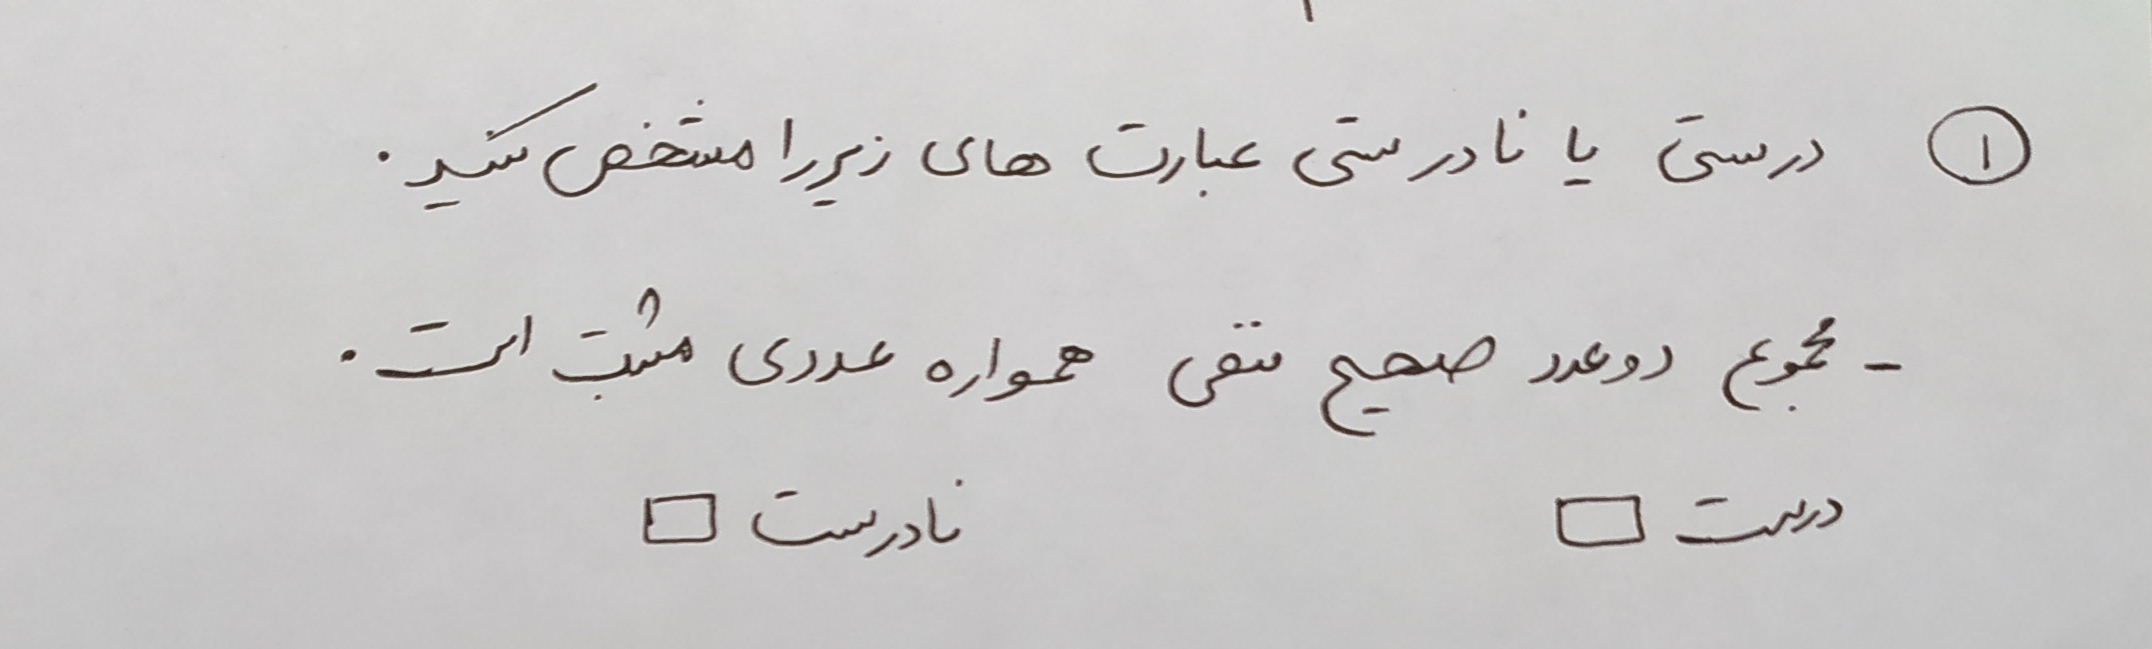 ① درستی یا نادرستی عبارت های زیر را مشخص کنید.
- مجموع دو عدد صحیح منفی همواره عددی مثبت است.
درست □ نادرست □